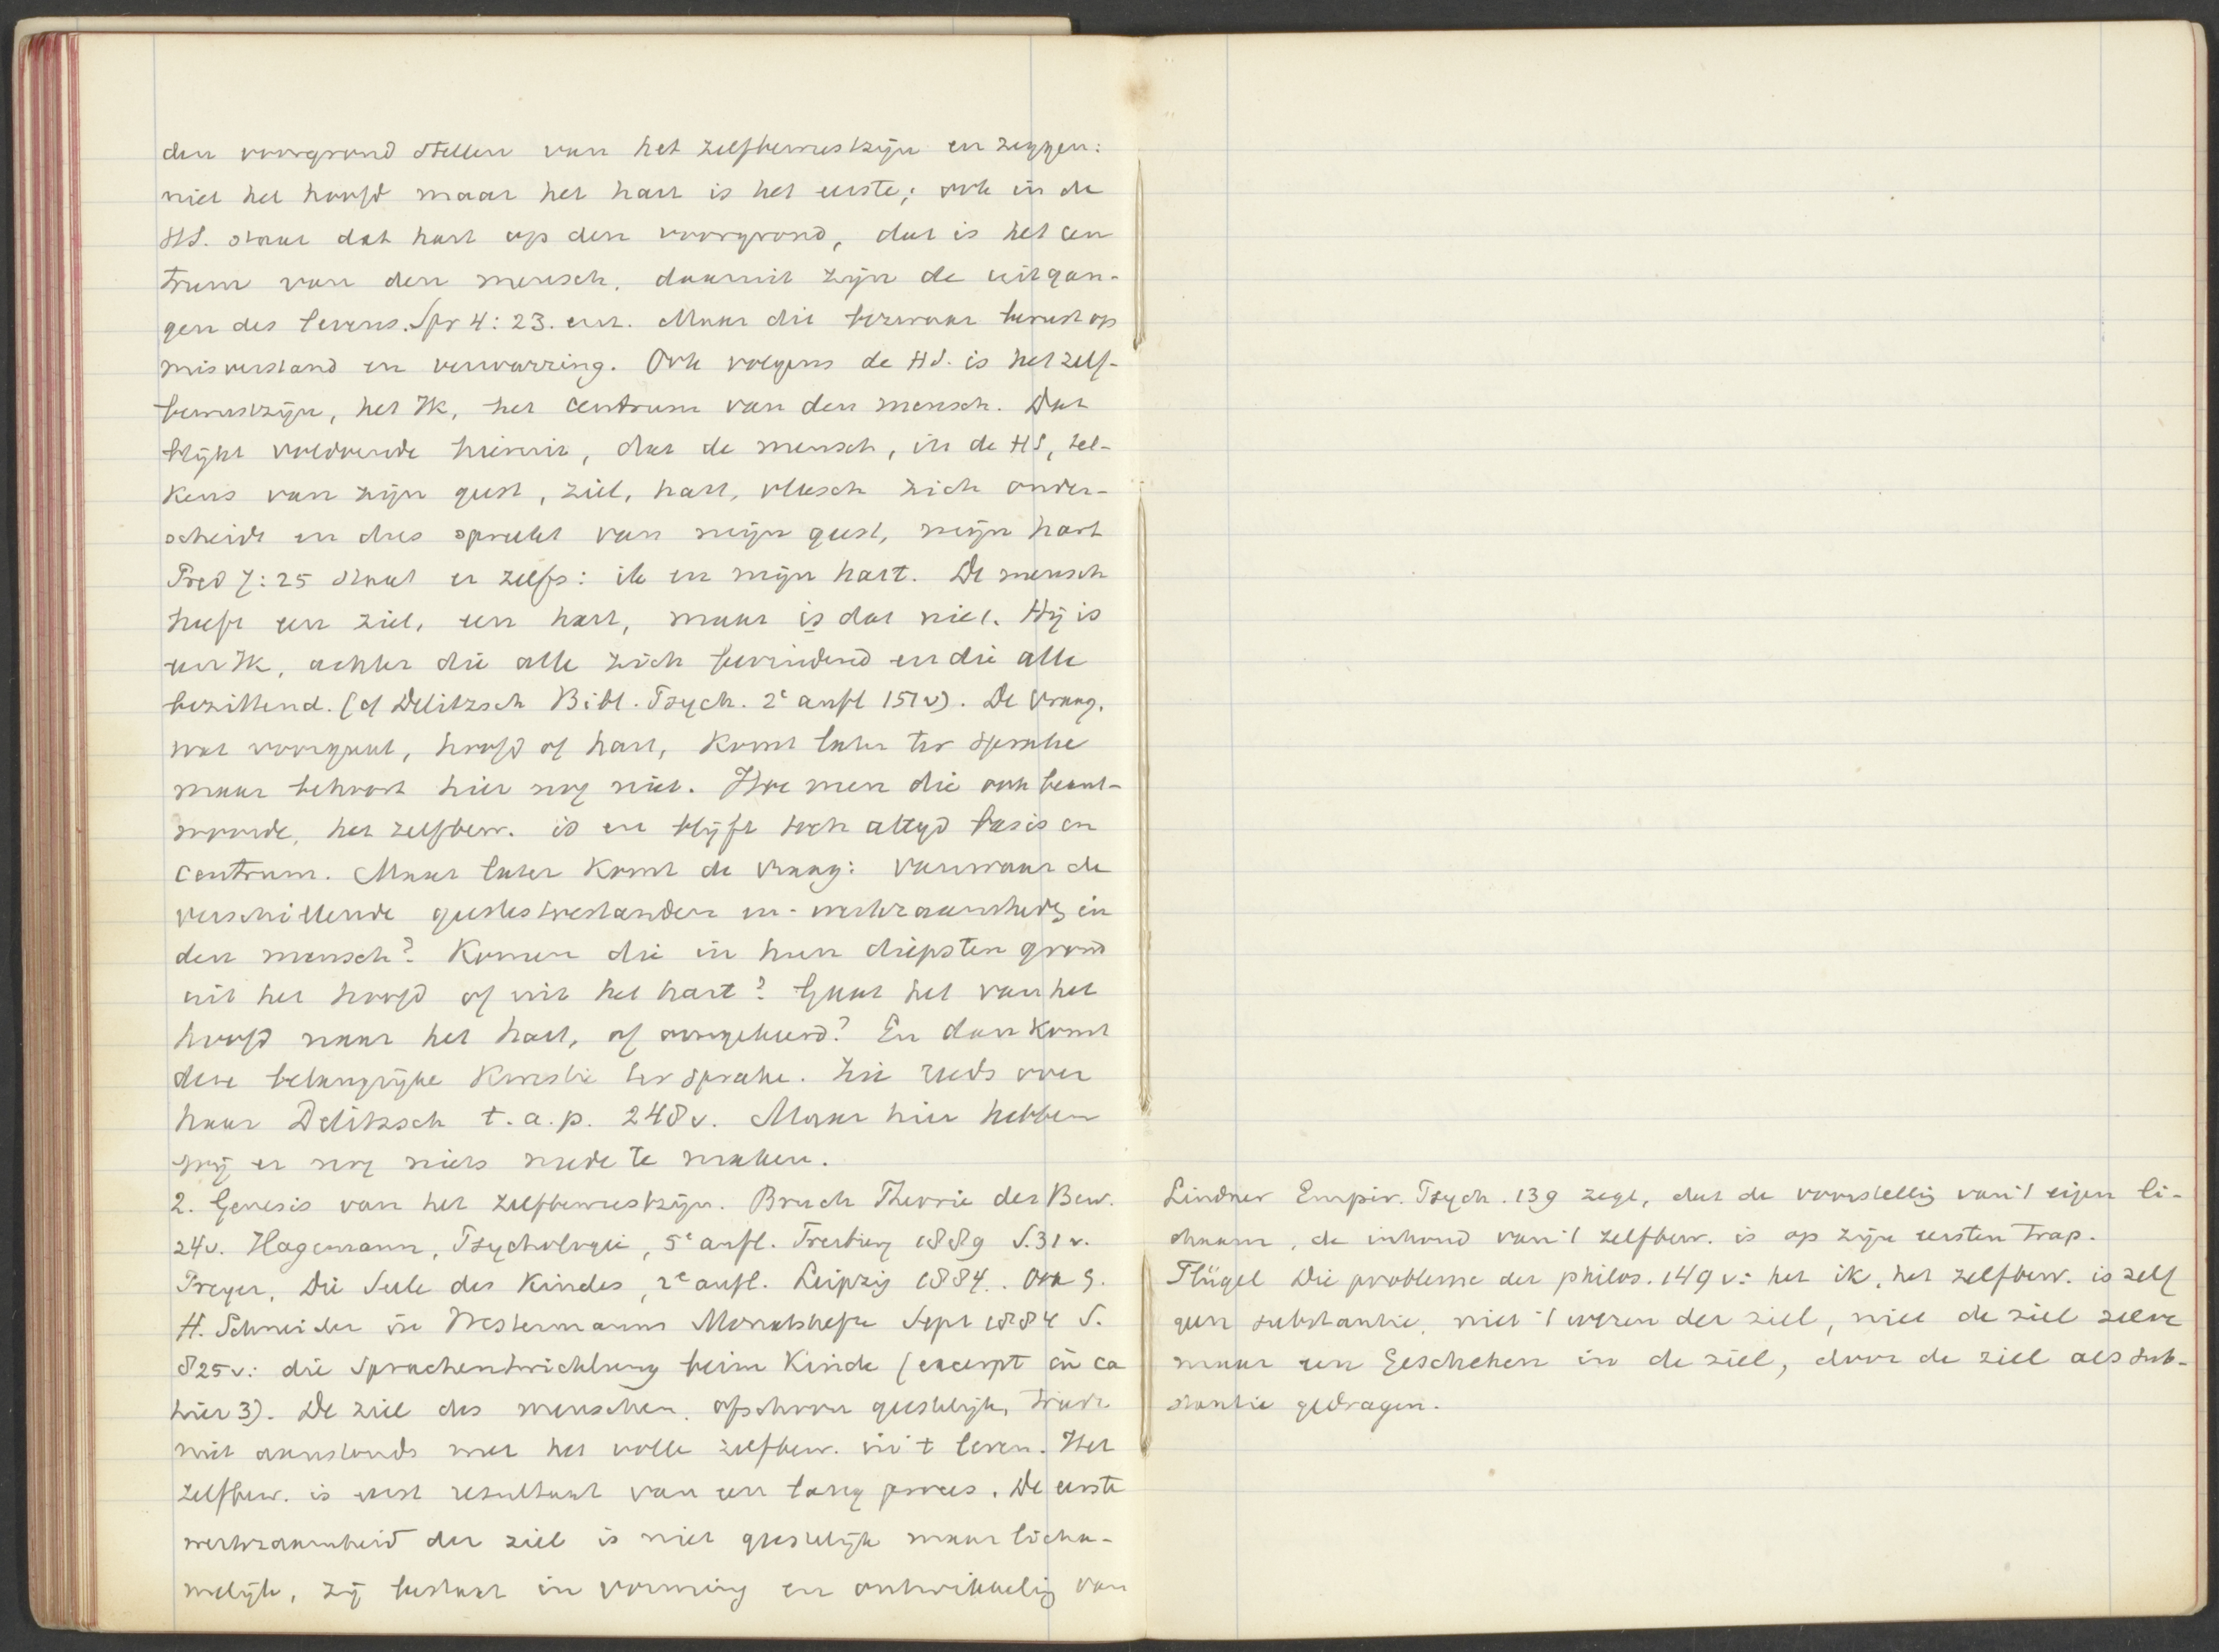 den voorgrond stellen van het zelfbewustzijn en zeggen:
niet het hoofd maar het hart is het eerste; ook in de
HS. staat dat hart op den voorgrond, dat is het cen
trum van den mensch, daaruit zijn de uitgan-
gen des levens. Spr 4:23. enz. Maar die bezwaar berust op
misverstand en verwarring. Ook volgens de HS. is het zelf-
bewustzijn, het Ik, het centrum van den mensch. Dat
blijkt voldoende hieruit, dat de mensch, in de HS, tel-
kens van zijn geest, ziel, hart, vleesch zich onder-
scheidt en dus spreekt van mijn geest, mijn hart
Pred 7:25 staat er zelfs: ik en mijn hart. De mensch
heeft een ziel, een hart, maar is dat niet. Hij is
een Ik, achter die alle zich bevindend en die alle
bezittend. (cf Delitzsch Bibl. Psych. 2e aufl 151v). De vraag,
wat voorgaat, hoofd of hart, komt later ter sprake
maar behoort hier nog niet. Hoe men die ook beant-
woorde, het zelfbew. is en blijft toch altijd basis en
centrum. Maar later komt de vraag: vanwaar de
verschillende geestestoestanden en -werkzaamheden in
den mensch? Komen die in hun diepsten grond
uit het hoofd of uit het hart? Gaat het van het
hoofd naar het hart, of omgekeerd? En dan komt
deze belangrijke kwestie ter sprake. Zie reeds over
haar Delitzsch t.a.p. 248v. Maar hier hebben
wij er nog niets mede te maken.
2. Genesis van het zelfbewustzijn. Bruch Theorie des Bew.
24v. Hagemann, Psychologie, 5e aufl. Freiburg 1889 S.31v.
Preyer, Die Seele des Kindes, 2e aufl. Leipzig 1884. Ook G.
H. Schneider in Westermanns Monatshefte Sept 1884 S.
825v: die Sprachentwicklung beim Kinde (excerpt in ca
hier 3). De ziel des menschen, ofschoon geestelijk, treedt
niet aanstonds met het volle zelfbew. in 't leven. Het
zelfbew. is eerst resultaat van een lang proces. De eerste
werkzaamheid der ziel is niet geestelijk maar licha-
melijk, zij bestaat in vorming en ontwikkeling van
Lindner Empir. Psych. 139 zegt, dat de voorstelling van 't eigen li-
chaam, de inhoud van 't zelfbew. is op zijn eersten trap.
Flügel Die probleme der philos. 149v: het ik, het zelfbew. is zelf
geen substantie, niet 't wezen der ziel, niet de ziel zelve
maar een Geschehen in de ziel, door de ziel als sub-
stantie gedragen.